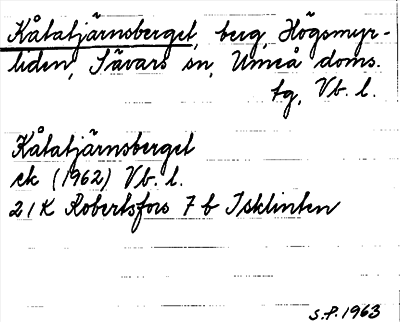 Kåtatjärnsberget, berg, Högsmyr-
liden, Sävars sn, Umeå doms.
tg, Vb. l.
Kåtatjärnsberget
ek (1962) Vb. l.
21K Robertsfors 7 b Isklinten
S.P. 1963